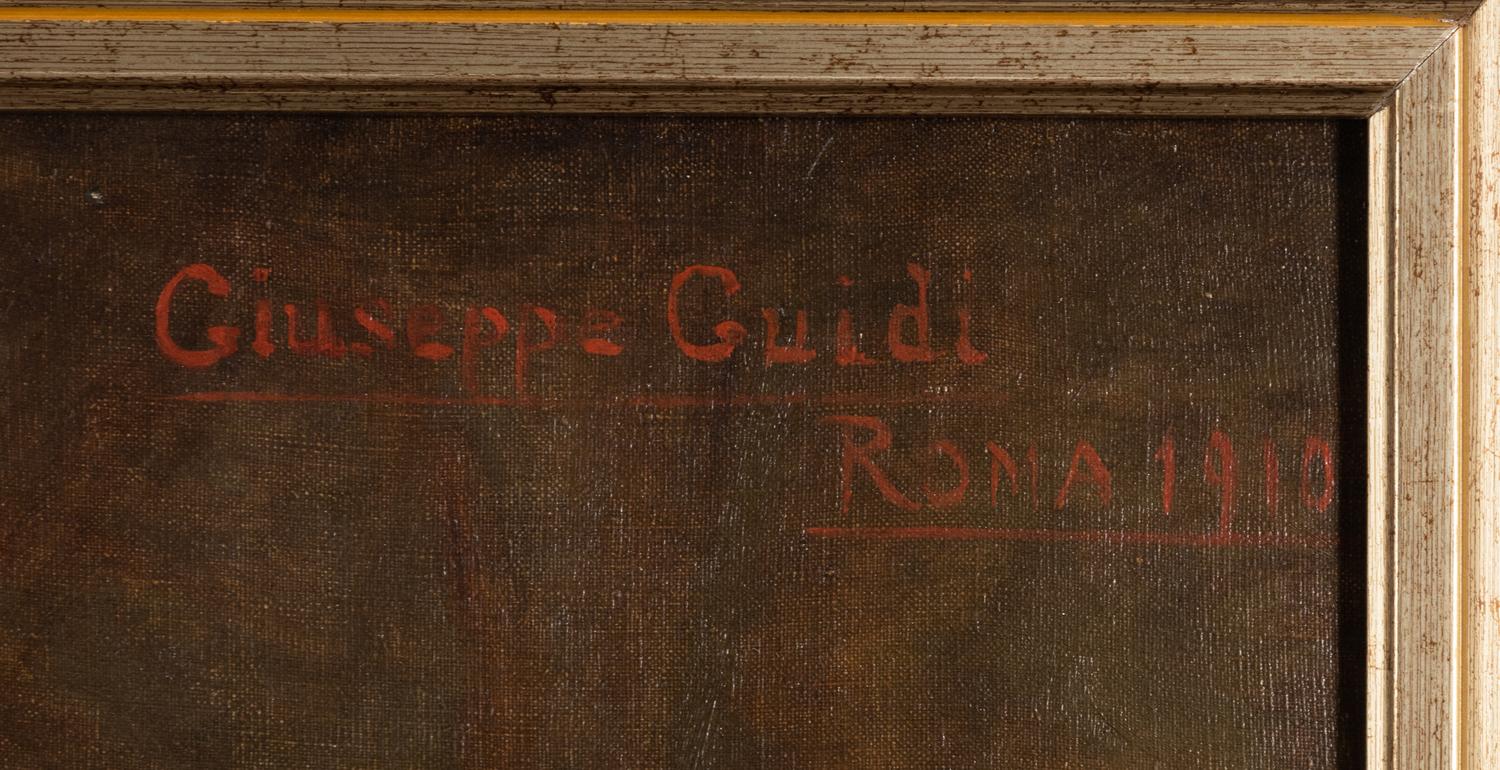 Giuseppe Guidi
ROMA 1910